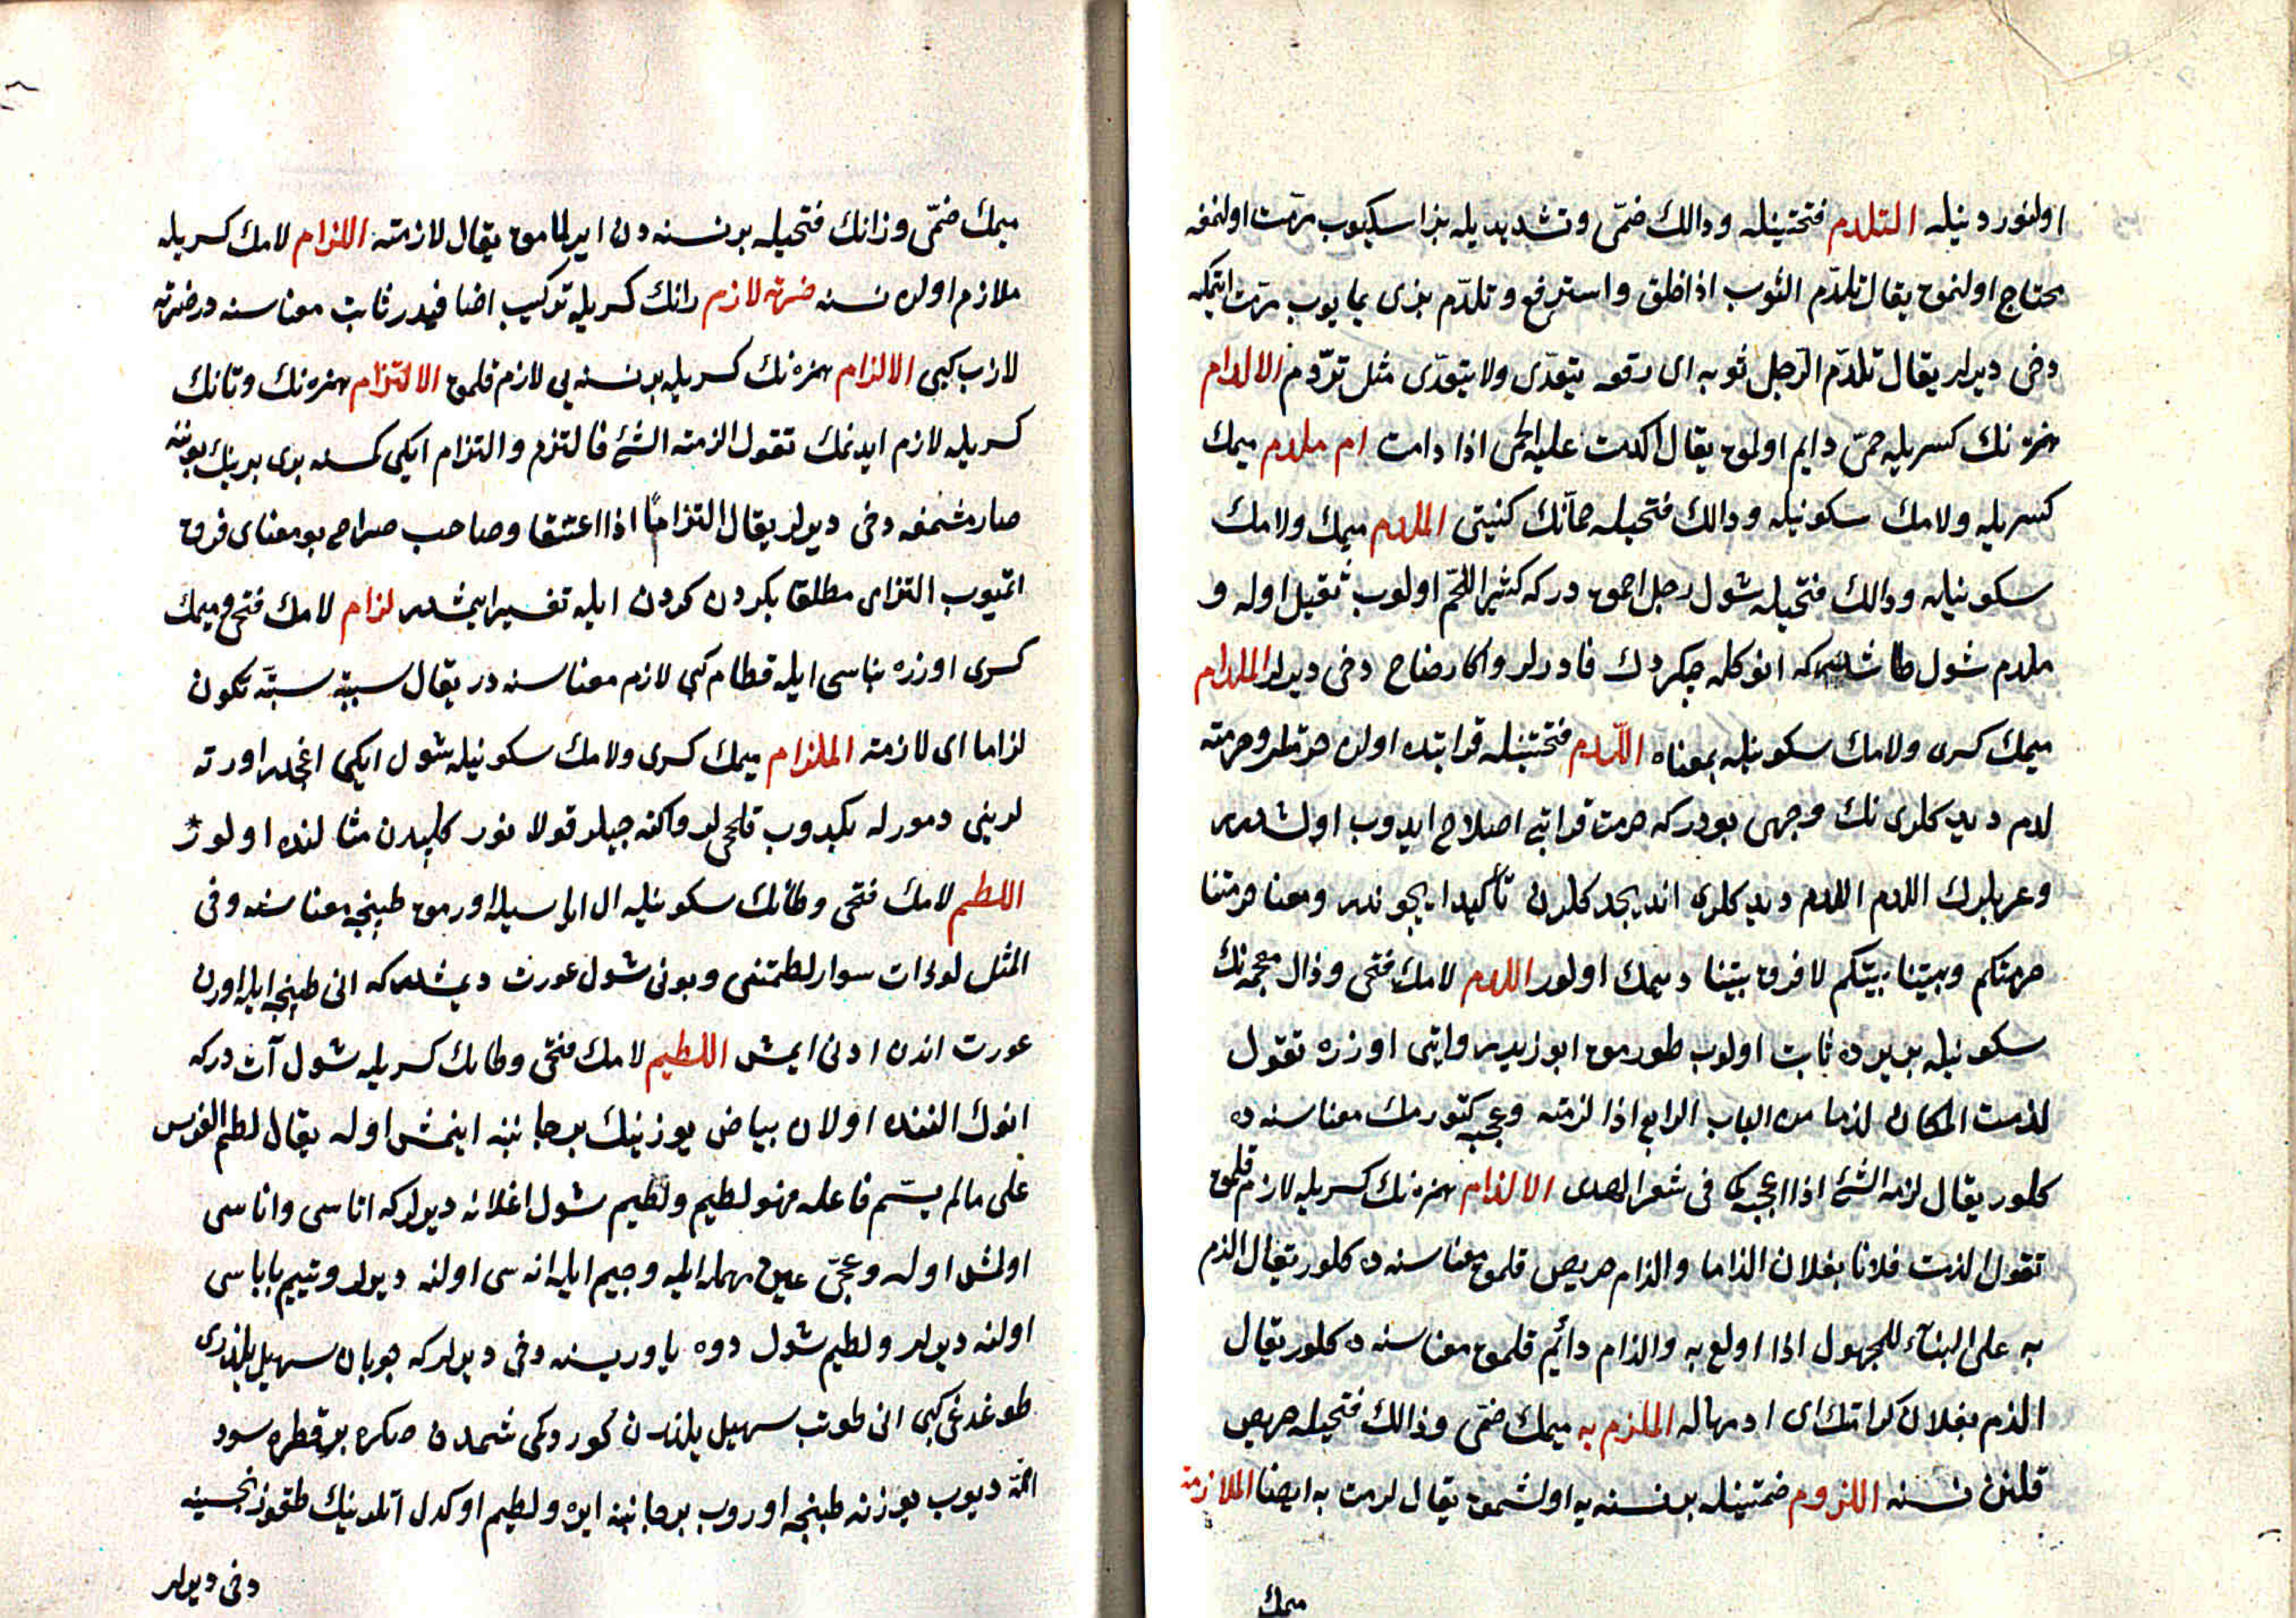 اولنور دينيله التلدم فتحتينله ودالك ضمّى وتشديديله بز اسكيوب مرّمت اولنمغه
محتاج اولنمق يقال تلدّم الثوب اذا خلق واسترقع وتلدّم بزى يمايوب مرّمت اتمكه
دخى ديرلر يقال تلدّم الرّجل ثوبه اى رقعه يتعدّى ولا يتعدّى مثل تردّم الالدام
همزه نك كسريله حمّى دايم اولمق يقال الدمت عليه الحمى اذا دامت ام ملدم ميمك
كسريله ولامك سكونيله ودالك فتحيله حمّانك كنيتى الملدم ميمك ولامك
سكونيله ودالك فتحيله شول رجل احمق دركه كثير اللحم اولوب ثقيل اوله و
ملدم شول طاشدركه انوكله چكردك قادرلر واكا رضاح دخى ديرلر الملدام
ميمك كسرى ولامك سكونيله بمعناه اللّدم فتحتينله قرابتده اولان حرمتلر وحرمته
لدم ديدكلرى نك وجهى بودركه حرمت قرابتى اصلاح ايدوب اولشدرر
وعربلرك اللدم اللدم ديدكلرى انديجد كلرن تأكيد ايچوندر ومعنا حرمتنا
حرمتكم وبيتنا بيتكم لا فرق بيننا ديمك اولور اللدم لامك فتحى وذال معجمه نك
سكونيله بر يرده ثابت اولوب طورمق ابو زيد روايتى اوزره تقول
لذمت المكان لذما من الباب الرابع اذا لزمته وعجبه كتورمك معناسنه ده
كلور يقال لذمه الشئ اذا اعجبه فى شعر الهذلى الالذام همزه نك كسريله لازم قلمق
تقول الذمت فلانا بفلان الذاما والذام حريص قلمق معناسنه ده كلور يقال الذم
به على البناء للمجهول اذا اولع به والذام دائم قلمق معناسنه ده كلور يقال
الذم بفلان كرامتك اى ادمها له الملزم به ميمك ضمّى وذالك فتحيله حريص
قلنن نسنه اللزوم ضمتينله بر نسنه يه اولشمق يقال لزمت به ايضا الملازمة
ميمك
ميمك ضمّى وزانك فتحيله بر نسنه دن ايرلمامق يقال لازمته اللزام لامك كسريله
ملازم اولن نسنه ضربة لازم رانك كسريله تركيب اضافيدر ثابت معناسنه در ضربة
لازب كبى الالزام همزه نك كسريله بر نسنه يى لازم قلمق الالتزام همزه نك وتانك
كسريله لازم ايدنمك تقول الزمته الشئ فالتزم والتزام ايكى كمسنه برى برينك بويننه
صارمشمغه دخى ديرلر يقال التزاما اذا اعتنقا وصاحب صراح بو معناى فرق
اتميوب التزامى مطلقا بكردن كردن ايله تفسير ايتمشدر لزام لامك فتحى وميمك
كسرى اوزره بناسى ايله قطام كبى لازم معناسنه در يقال سببته سبّة تكون
لزاما اى لازمته الملزام ميمك كسرى ولامك سكونيله شول ايكى اغجدر اورته
لرينى دمورله بكيدوب قلحى لر وماكنه جيلر قولانور كليدن مثالنده اولور
اللطم لامك فتحى وطانك سكونيله ال ايله سيله اورمق طبنجه معناسنه وفى
المثل لو ذات سوار لطمتنى وبونى شول عورت ديمشدركه انى طبنجه ايله اورن
عورت اندن ادنى ايمش اللطيم لامك فتحى وطانك كسريله شول آت دركه
انوك الننده اولان بياض يوزينك بر جانبنه اينمش اوله يقال لطم الفرس
على ما لم يسّم فاعله فهو لطيم ولطيم شول اغلانه ديرلركه اتاسى واناسى
اولمش اوله وعجىّ عين مهمله ايله وجيم ايله انه سى اولنه ديرلر ويتيم باباسى
اولنه ديرلر ولطيم شول دوه ياوريسنه دخى ديرلركه چوبان سهيل يلدزى
طوغدغى كبى انى طوتب سهيل يلدزن كوردكى شمدن صكره بر قطره سود
امّه ديوب يوزنه طبنجه اوروب بر جانبنه ايره ولطيم اوكدل اتلرينك طقوزنجسنه
دخى ديرلر